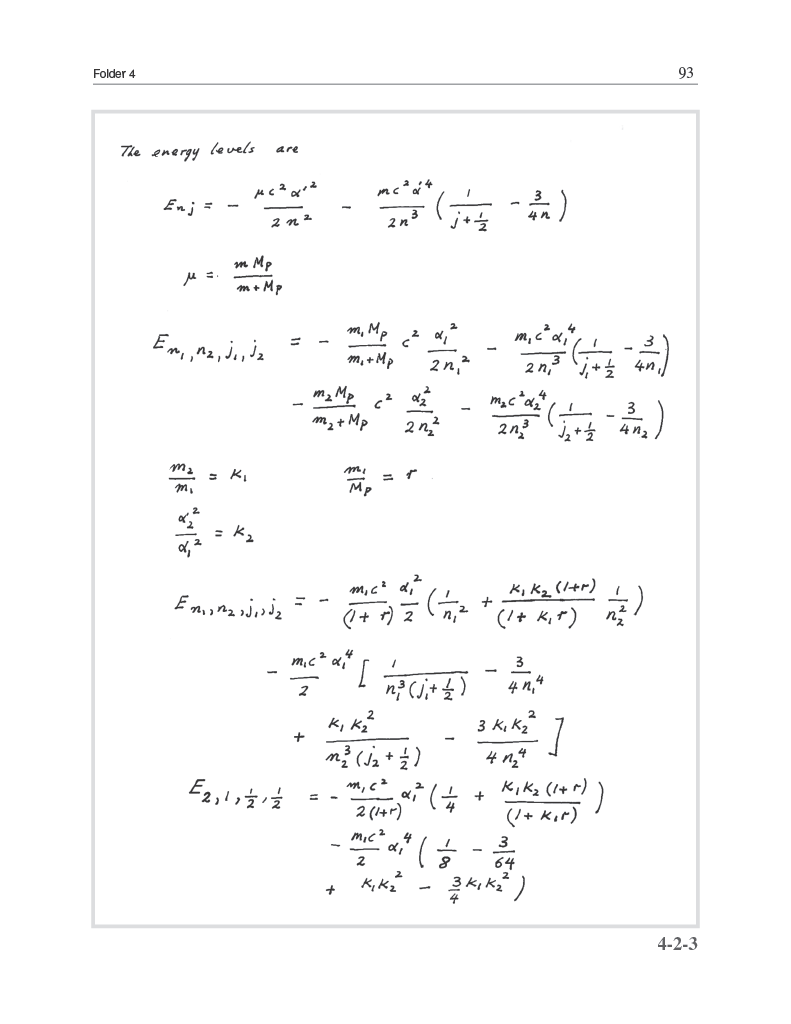 Folder 4 93
The energy levels are
E_{nj} = - \frac{μc²α'²}{2n²} - \frac{mc²α'⁴}{2n³} ( \frac{1}{j+\frac{1}{2}} - \frac{3}{4n} )
μ = \frac{m M_p}{m+M_p}
E_{n₁,n₂,j₁,j₂} = - \frac{m₁M_p}{m₁+M_p} c² \frac{α₁²}{2n₁²} - \frac{m₁c²α₁⁴}{2n₁³} ( \frac{1}{j₁+\frac{1}{2}} - \frac{3}{4n₁} )
- \frac{m₂M_p}{m₂+M_p} c² \frac{α₂²}{2n₂²} - \frac{m₂c²α₂⁴}{2n₂³} ( \frac{1}{j₂+\frac{1}{2}} - \frac{3}{4n₂} )
\frac{m₂}{m₁} = K₁ \frac{m₁}{M_p} = r
\frac{α₂²}{α₁²} = K₂
E_{n₁,n₂,j₁,j₂} = - \frac{m₁c²}{(1+r)} \frac{α₁²}{2} ( \frac{1}{n₁²} + \frac{K₁K₂(1+r)}{(1+K₁r)} \frac{1}{n₂²} )
- \frac{m₁c²α₁⁴}{2} [ \frac{1}{n₁³(j₁+\frac{1}{2})} - \frac{3}{4n₁⁴}
+ \frac{K₁K₂²}{n₂³(j₂+\frac{1}{2})} - \frac{3K₁K₂²}{4n₂⁴} ]
E_{2,1,\frac{1}{2},\frac{1}{2}} = - \frac{m₁c²}{2(1+r)} α₁² ( \frac{1}{4} + \frac{K₁K₂(1+r)}{(1+K₁r)} )
- \frac{m₁c²}{2} α₁⁴ ( \frac{1}{8} - \frac{3}{64}
+ K₁K₂² - \frac{3}{4} K₁K₂² )
4-2-3